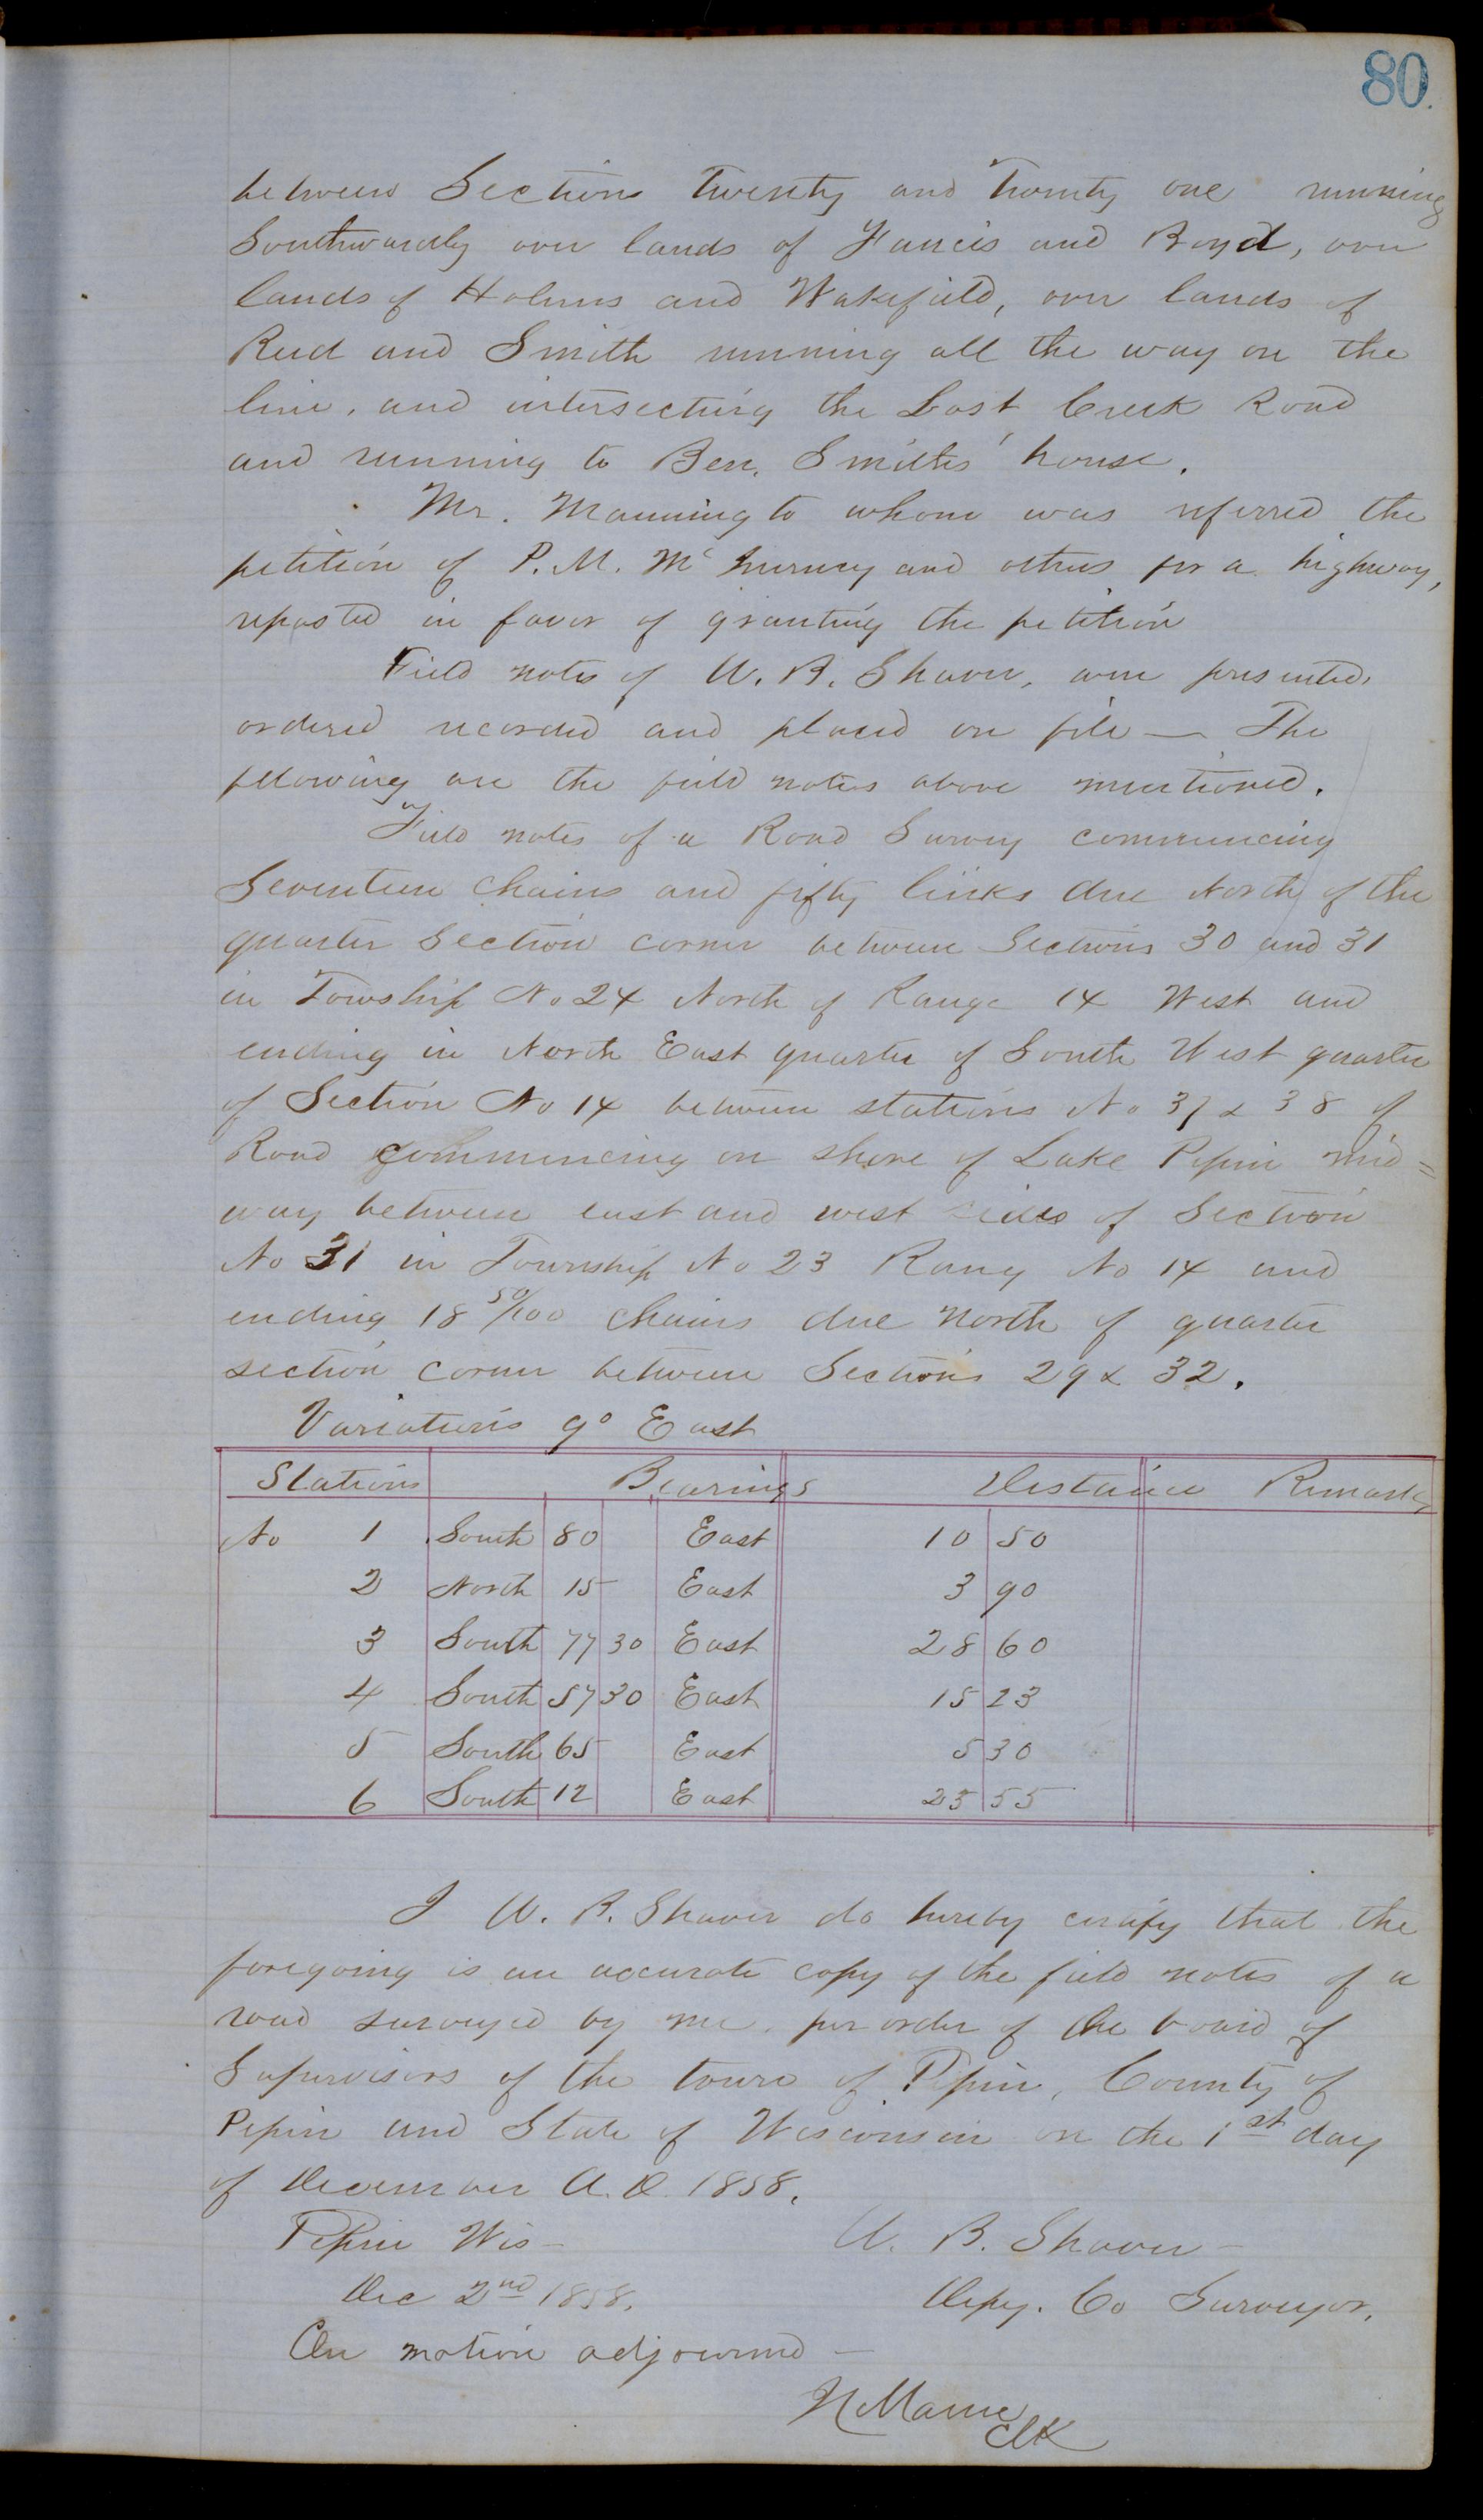 80.
between Sections Twenty and Twenty one running
Southwardly over lands of Francis and Boyd, over
lands of Holmes and Wakefield, over lands of
Reed and Smith running all the way on the
line, and intersecting the Lost Creek Road
and running to Ben. Smiths' house.
Mr. Manning to whom was referred the
petition of P. M. Mc and others for a highway,
reported in favor of granting the petition
Field notes of W. B. Shaver, were presented,
ordered recorded and placed on file — The
following are the field notes above mentioned.
Field notes of a Road Survey commencing
Seventeen Chains and fifty links due North of the
quarter Section corner between Sections 30 and 31
in Towship No 24 North of Range 14 West and
ending in North East quarter of South West quarter
of Section No 14 between stations No 37 & 38 of
Road Commencing on shore of Lake Pepin mid=
way between east and west sides of Section
No 31 in Township No 23 Rang No 14 and
ending 18 50/100 chains due North of quarter
section corner between Sections 29 & 32.
Variations 9° East
Stations Bearings Distance Remarks
No 1 South 80 East 10 50
2 North 15 East 3 90
3 South 77 30 East 28 60
4 South 57 30 East 15 23
5 South 65 East 5 30
6 South 12 East 25 55
I W. B. Shaver do hereby certify that the
foregoing is an accurate copy of the field notes of a
road surveyed by me, per order of the board of
Supervisors of the town of Pepin, County of
Pepin and State of Wisconsin on the 1st day
of December A.D. 1858.
Pepin Wis — W. B. Shaver —
Dec 2nd 1858. Depy. Co Surveyor.
On motion adjourned —
Clk